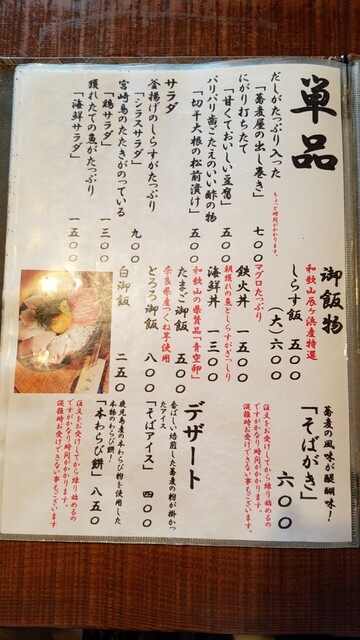 単品
だしがたっぷり入った
「蕎麦屋の出し巻き」
七〇〇
ちょっと時間がかかります。
にがり打ちたて
「甘くておいしい豆富」
五〇〇
パリパリ歯ごたえのいい酢の物
「切干大根の松前漬け」
五〇〇
サラダ
釜揚げのしらすがたっぷり
「シラスサラダ」
九〇〇
宮崎鳥のたたきがのっている
「鶏サラダ」
一三〇〇
獲れたての魚がたっぷり
「海鮮サラダ」
一五〇〇
御飯物
和歌山辰ヶ浜産特選
しらす飯 五〇〇
(大)六〇〇
マグロたっぷり
鉄火丼 一五〇〇
海鮮丼 一三〇〇
朝獲れの魚としらすがぎっしり
たまご御飯 五〇〇
和歌山の県賞品「青空卵」
とろろ御飯 八〇〇
奈良県産つくね芋使用
白御飯 二五〇
蕎麦の風味が醍醐味!
「そばがき」
六〇〇
注文をお受けしてから練り始めるの
ですがかなり時間がかかります。
混雑時お受けできない事もございます
デザート
香ばしい焙煎した蕎麦の粉が掛かっ
たアイス
「そばアイス」 四〇〇
鹿児島産の本わらび粉を使用した
本物のわらび餅!
「本わらび餅」 八五〇
注文をお受けしてから練り始めるの
ですがかなり時間がかかります。
混雑時お受けできない事もございます